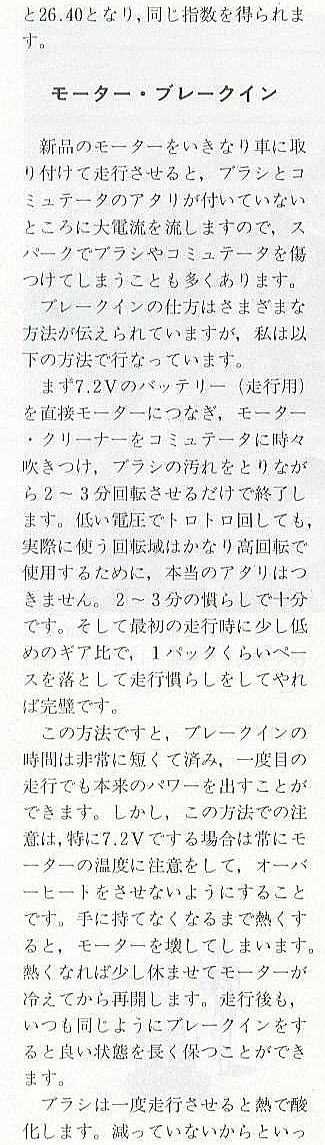 と26.40となり,同じ指数を得られま
す。
モーター・ブレークイン
新品のモーターをいきなり車に取
り付けて走行させると，ブラシとコ
ミュテータのアタリが付いていない
ところに大電流を流しますので，ス
パークでブラシやコミュテータを傷
つけてしまうことも多くあります。
ブレークインの仕方はさまざまな
方法が伝えられていますが，私は以
下の方法で行なっています。
まず7.2Vのバッテリー（走行用）
を直接モーターにつなぎ，モーター
・クリーナーをコミュテータに時々
吹きつけ，ブラシの汚れをとりなが
ら2～3分回転させるだけで終了し
ます。低い電圧でトロトロ回しても，
実際に使う回転域はかなり高回転で
使用するために，本当のアタリはつ
きません。2～3分の慣らしで十分
です。そして最初の走行時に少し低
めのギア比で，1パックくらいペー
スを落として走行慣らしをしてやれ
ば完璧です。
この方法ですと，ブレークインの
時間は非常に短くて済み，一度目の
走行でも本来のパワーを出すことが
できます。しかし，この方法での注
意は,特に7.2Vでする場合は常にモ
ーターの温度に注意をして，オーバ
ーヒートをさせないようにすること
です。手に持てなくなるまで熱くす
ると，モーターを壊してしまいます。
熱くなれば少し休ませてモーターが
冷えてから再開します。走行後も，
いつも同じようにブレークインをす
ると良い状態を長く保つことができ
ます。
ブラシは一度走行させると熱で酸
化します。減っていないからといっ